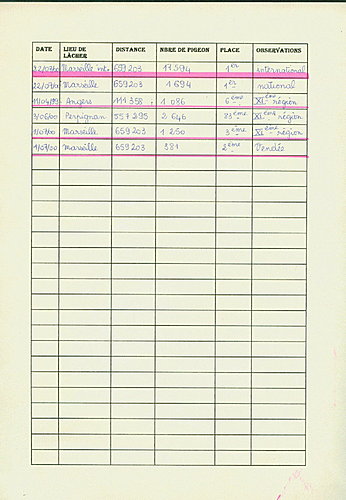 DATE LIEU DE LÂCHER DISTANCE NBRE DE PIGEON PLACE OBSERVATIONS
Marseille int. 659203 17594 1er international
22/07/00 Marseille 659203 1694 1er national
Angers 111358 1086 6ème XIème région
3/06/00 Perpignan 557295 2646 XIème région
Marseille 659203 1250 3ème XIème région
Marseille 659203 381 2ème Vendée